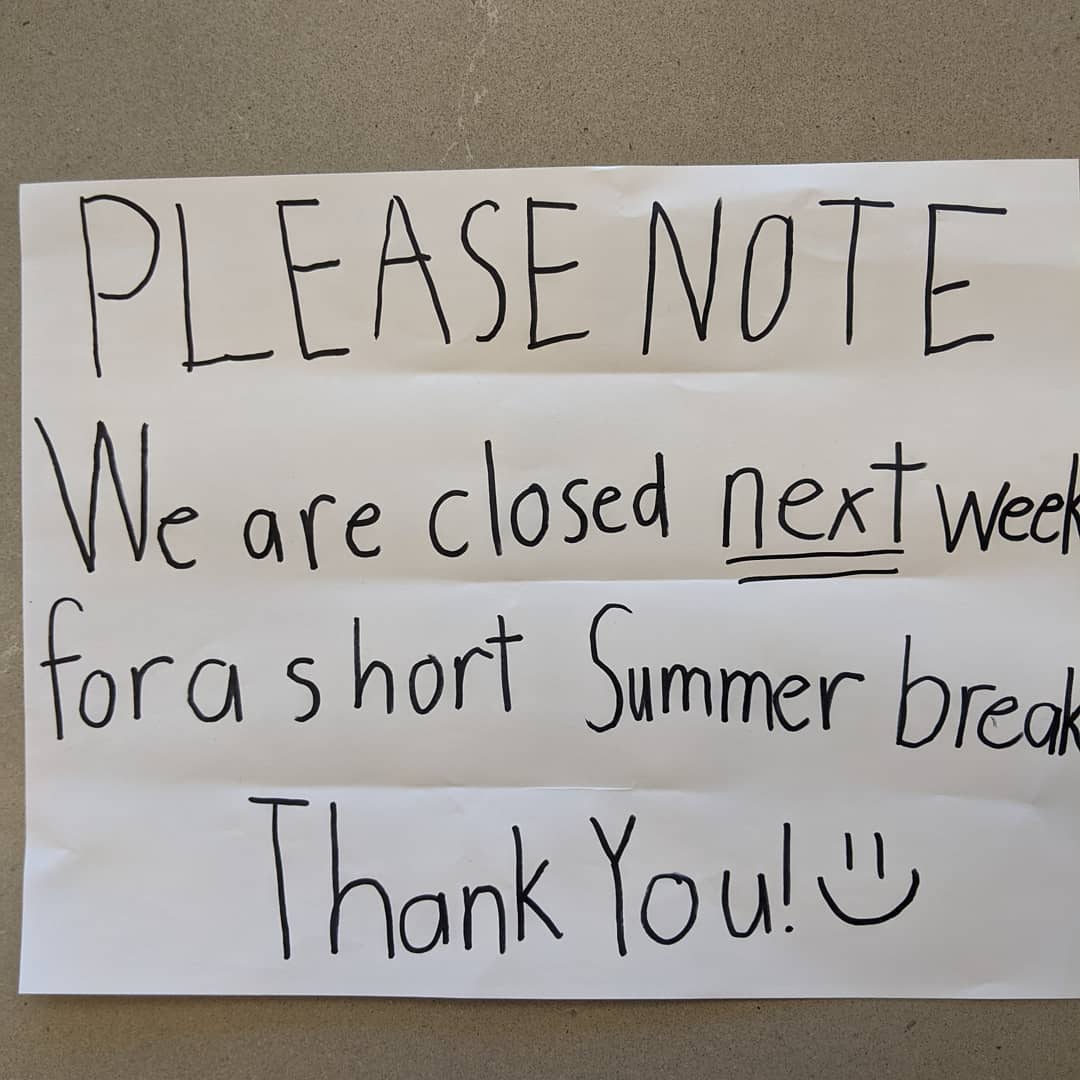 PLEASE NOTE
We are closed next week
for a short Summer break
Thank You!